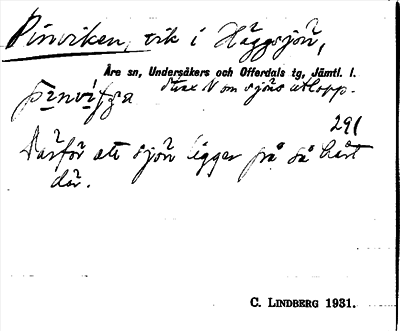 Pinviken, vik i Häggsjön,
Åre sn, Undersåkers och Offerdals tg, Jämtl. l.
strax N om sjöns utlopp.
291
Därför att sjön ligger på så hårt
där.
C. LINDBERG 1931.